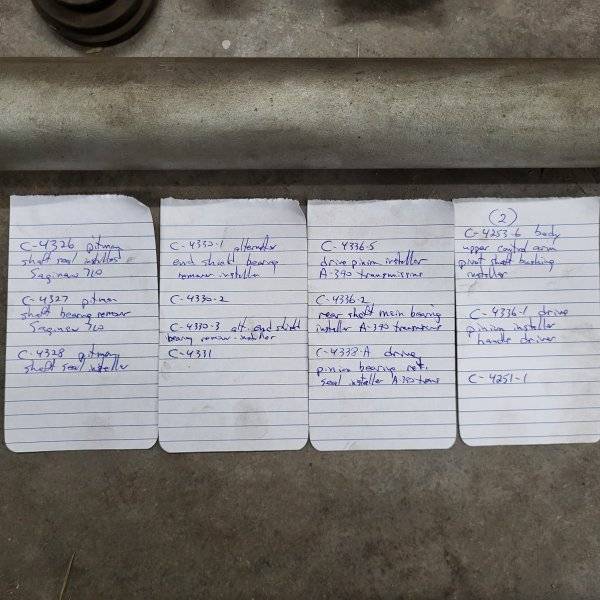 C-4326 pitman
shaft seal installer
Saginaw 710
C-4327 pitman
shaft bearing remover
Saginaw 710
C-4328 pitman
shaft seal installer
C-4330-1 alternator
end shield bearing
remover installer
C-4330-2
C-4330-3 alt. end shield
bearing remover installer
C-4331
C-4336-5
drive pinion installer
A-390 transmissions
C-4336-2
rear shaft main bearing
installer A-390 transmissions
C-4338-A drive
pinion bearing ret.
seal installer A-390 trans
2
C-4253-6 body
upper control arm
pivot shaft bushing
installer
C-4336-1 drive
pinion installer
handle driver
C-4251-1